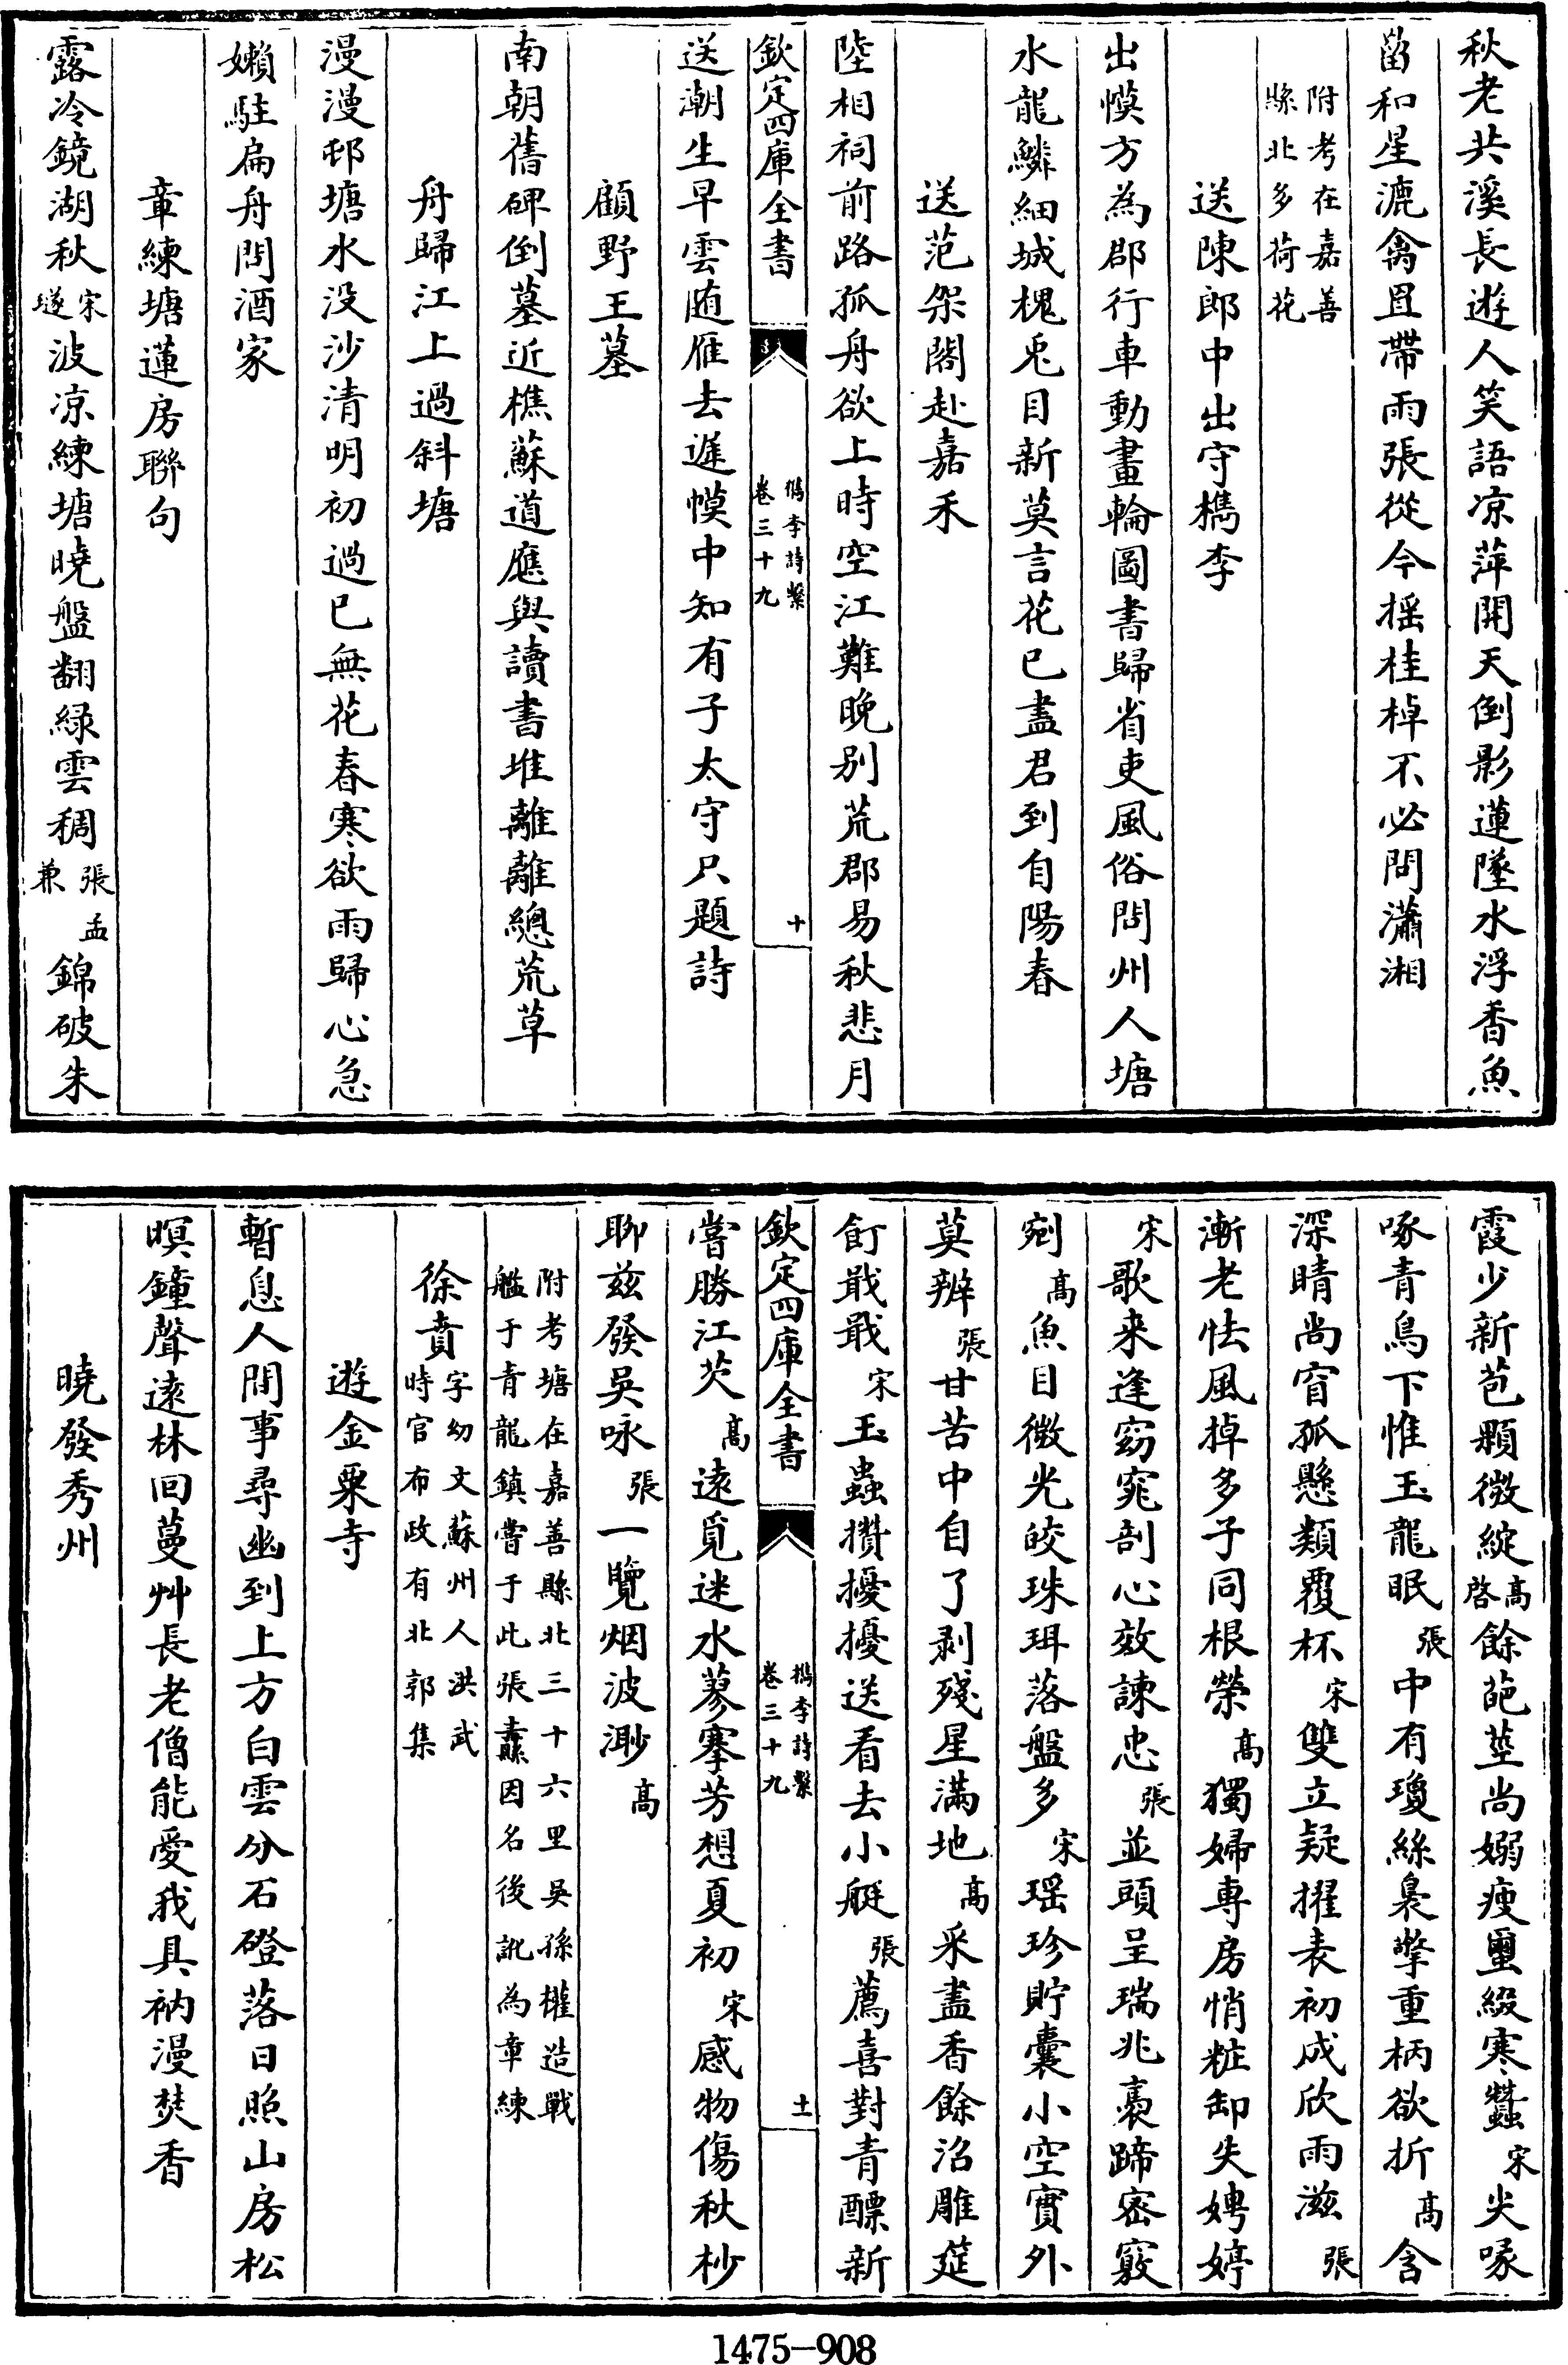 秋老共溪長遊人笑語凉萍開天倒影蓮墜水浮香魚
菑和星漉禽罝帶雨張從今揺桂棹不必問瀟湘
附考在嘉善
縣北多荷花
送陳郎中出守檇李
出幙方為郡行車動畫輪圖書歸省吏風俗問州人塘
水龍鱗細城槐兎目新莫言花已盡君到自陽春
送范架閣赴嘉禾
陸相祠前路孤舟欲上時空江難晚別荒郡易秋悲月
欽定四庫全書
檇李詩繫
卷三十九
十
送潮生早雲随雁去遲幙中知有子太守只題詩
顧野王墓
南朝舊碑倒墓近樵蘇道應與讀書堆離離總荒草
舟歸江上過斜塘
漫漫邨塘水没沙清明初過已無花春寒欲雨歸心急
嬾駐扁舟問酒家
章練塘蓮房聯句
露冷鏡湖秋宋璲波凉練塘曉盤翻緑雲稠張孟兼錦破朱
霞少新苞顆微綻高啓餘葩莖尚嫋瘦蠒綴寒蠶宋尖喙
啄青鳥下惟玉龍眠張中有瓊絲裊擎重柄欲折高含
深睛尚窅孤懸類覆杯宋雙立疑擢表初成欣雨滋張
漸老怯風掉多子同根榮高獨婦專房悄粧卸失娉婷
宋歌来逢窈窕剖心效諫忠張並頭呈瑞兆裛蹄宻竅
剜高魚目微光皎珠珥落盤多宋瑶珍貯囊小空實外
莫辨張甘苦中自了剥殘星滿地高采盡香餘沼雕筵
飣戢戢宋玉蟲攢擾擾送看去小艇張薦喜對青醥新
欽定四庫全書
檇李詩繫
卷三十九
十一
嘗勝江芡高遠覓迷水蓼搴芳想夏初宋感物傷秋杪
聊兹發吳咏張一覽烟波渺高
附考塘在嘉善縣北三十六里吳孫權造戰
艦于青龍鎮嘗于此張纛因名後訛為章練
徐賁字幼文蘇州人洪武時官布政有北郭集
遊金粟寺
暫息人間事尋幽到上方白雲分石磴落日照山房松
暝鐘聲逺林回蔓艸長老僧能愛我具衲漫焚香
曉發秀州
1475-908